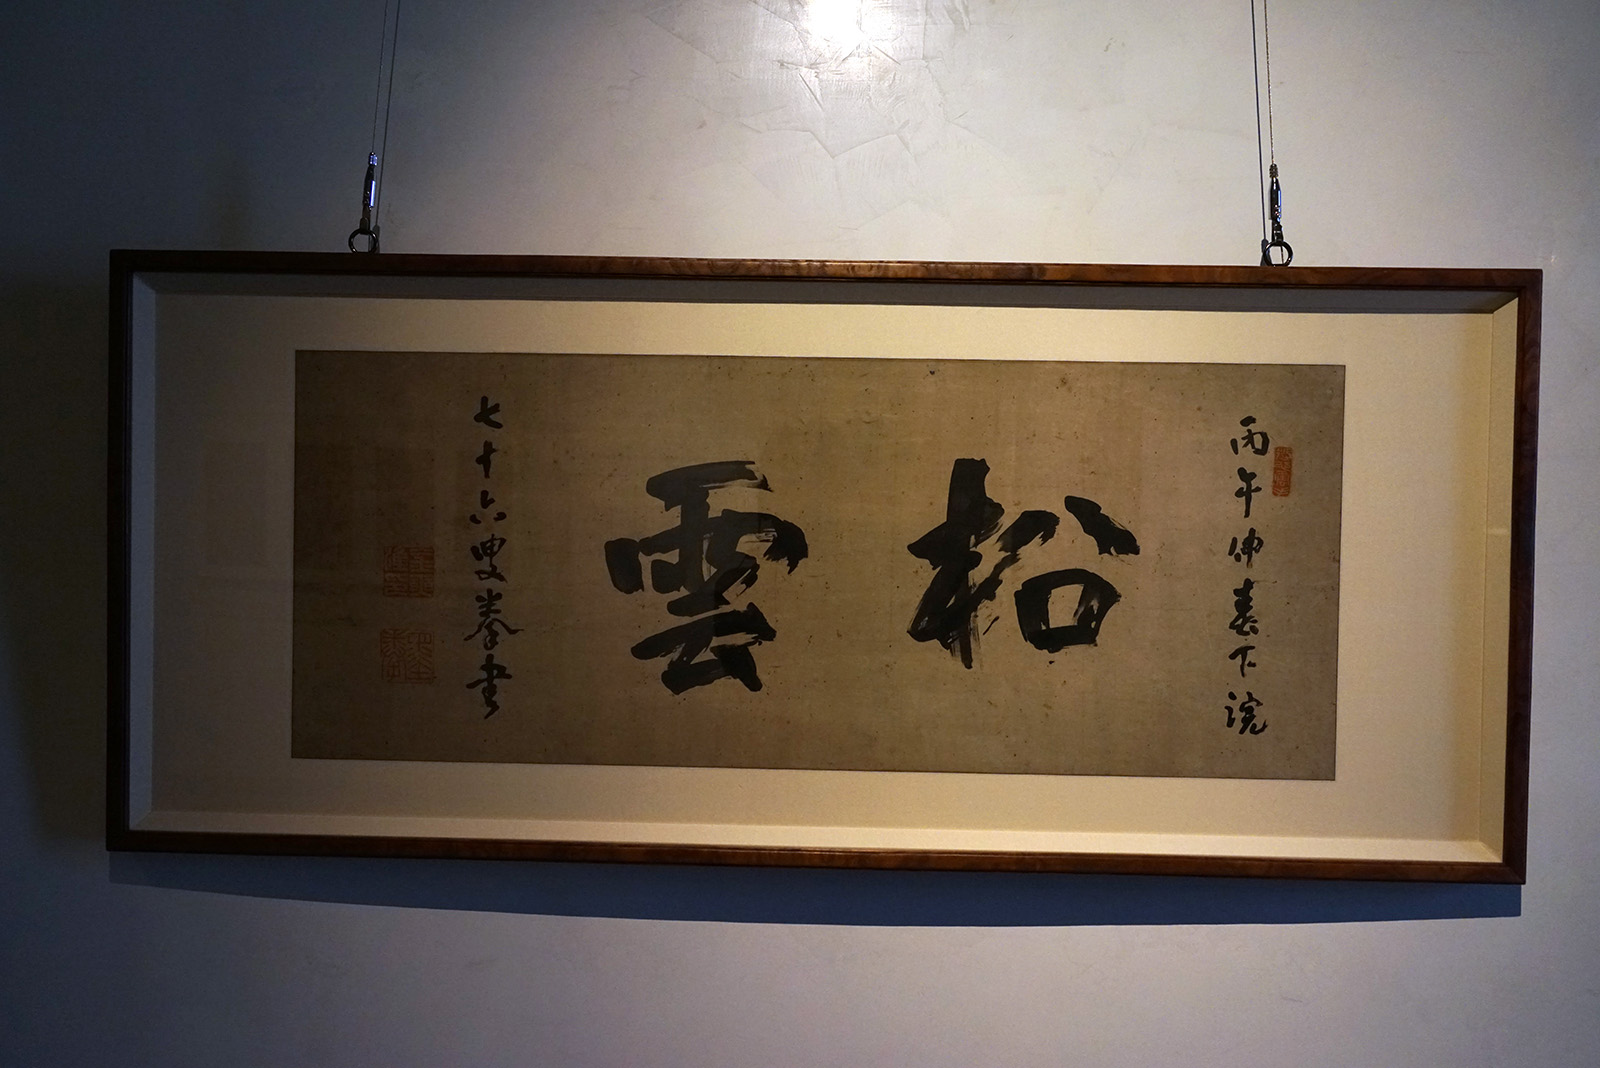 丙午仲春下浣
松雲
七十六叟拳書